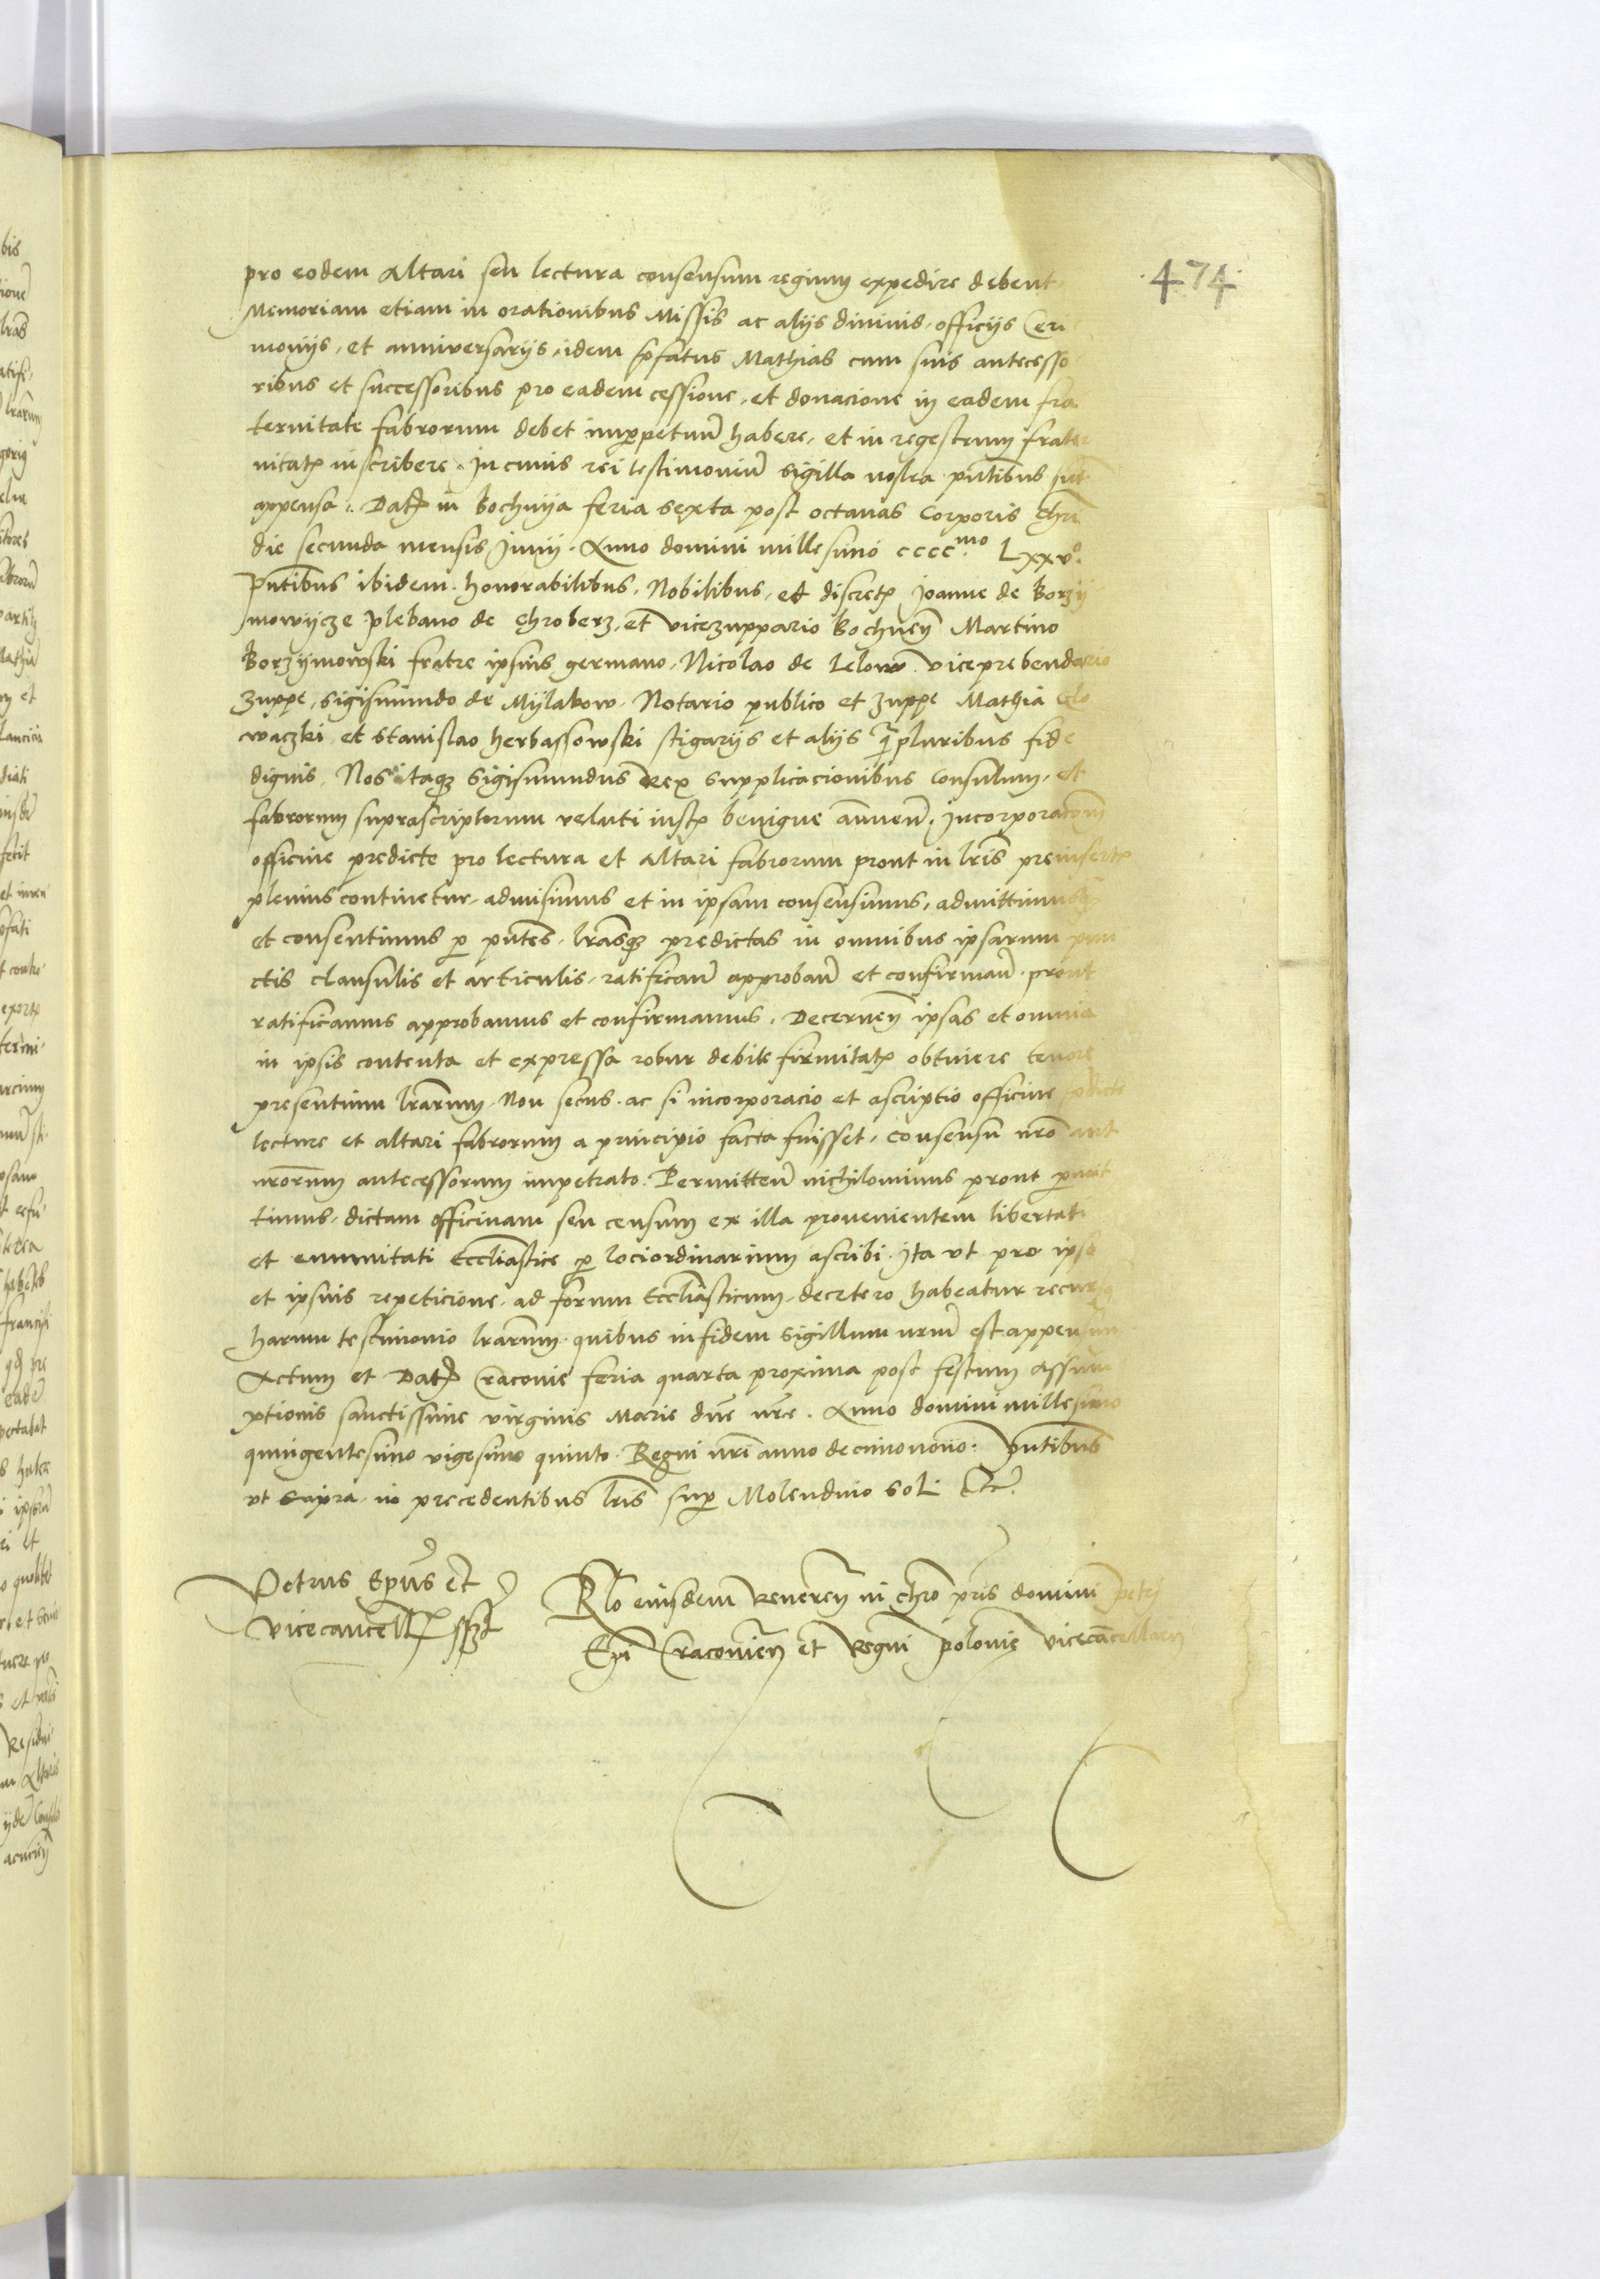 474
pro eodem Altari seu lectura consensum regium expedire debent
Memoriam etiam in orationibus Missis ac alijs diuinis officijs Ceri
monijs, et anniversarijs idem p̄fatus Mathias cum suis antecesso
ribus et successoribus pro eadem cessione, et donacione in eadem fra
ternitate fabrorum debet imꝑpetuū habere, et in regestrum frater
nitatꝭ inscribere. In cuius rei testimoniū sigilla nostra pn̄tibus sūt
appensa. Datꝭ in Bochnija feria sexta post octauas Corporis Chri
die secunda mensis Junij. Anno domini millesimo ccccmo Lxxvo.
Pn̄tibus ibidem honorabilibus, Nobilibus, et discretꝭ Joanne de Borzij
mowijcze plebano de Chroberz, et vicezuppario Bochnen̄ Martino
Borzijmowski fratre ipsius germano, Nicolao de Lelow viceprebendario
zuppe, Sigismundo de Mijlakow Notario publico et zuppe Mathia Glo
waczki et Stanislao herbassowski stigarijs et alijs q̄pluribus fide
dignis. Nos itaqꝫ Sigismundus Rex supplicacionibus Consulum, et
fabrorum suprascriptorum veluti iustꝭ benigne annuen̄. Incorporacōem
officine predicte pro lectura et altari fabrorum prout in lr̄is preinsertꝭ
plenius continetur, admisimus et in ipsam consensimus, admittimusqꝫ
et consentimus ꝑ pn̄tes, lr̄asqꝫ predictas in omnibus ipsarum pun
ctis clausulis et articulis, ratifican̄ approban̄ et confirman̄ prout
ratificamus approbamus et confirmamus. Decernen̄ ipsas et omnia
in ipsis contenta et expressa robur debite firmitatꝭ obtinere tenore
presentium lr̄arum. Non secus ac si incorporacio et ascriptio officine pdicte
lecture et altari fabrorum a principio facta fuisset, consensu nr̄o aut
nr̄orum antecessorum impetrato. Permitten̄ nichilominus prout ꝑmit
timus, dictam officinam seu censum ex illa prouenientem libertati
et emunitati Eccl̄iastice ꝑ lociordinarium ascribi. Ita vt pro ipso
et ipsius repeticione, ad forum Eccl̄iasticum, decetero habeatur recursus
harum testimonio lr̄arum quibus in fidem sigillum nr̄m est appensum
Actum et Datꝭ Cracouie feria quarta proxima post festum Assum
ptionis sanctissime virginis Marie dn̄e nr̄e. Anno domini millesimo
quingentesimo vigesimo quinto. Regni nr̄i anno decimonono. Pn̄tibus
vt supra in precedentibus lr̄is suꝑ Molendino sol etc̄.
Petrus Ep̄us et
vicecancellꝭ sszt
Rl̄o eiusdem Reueren̄ in chr̄o pr̄is domini petri
Ep̄i Cracouien̄ et Regni polonie vicecācellarij